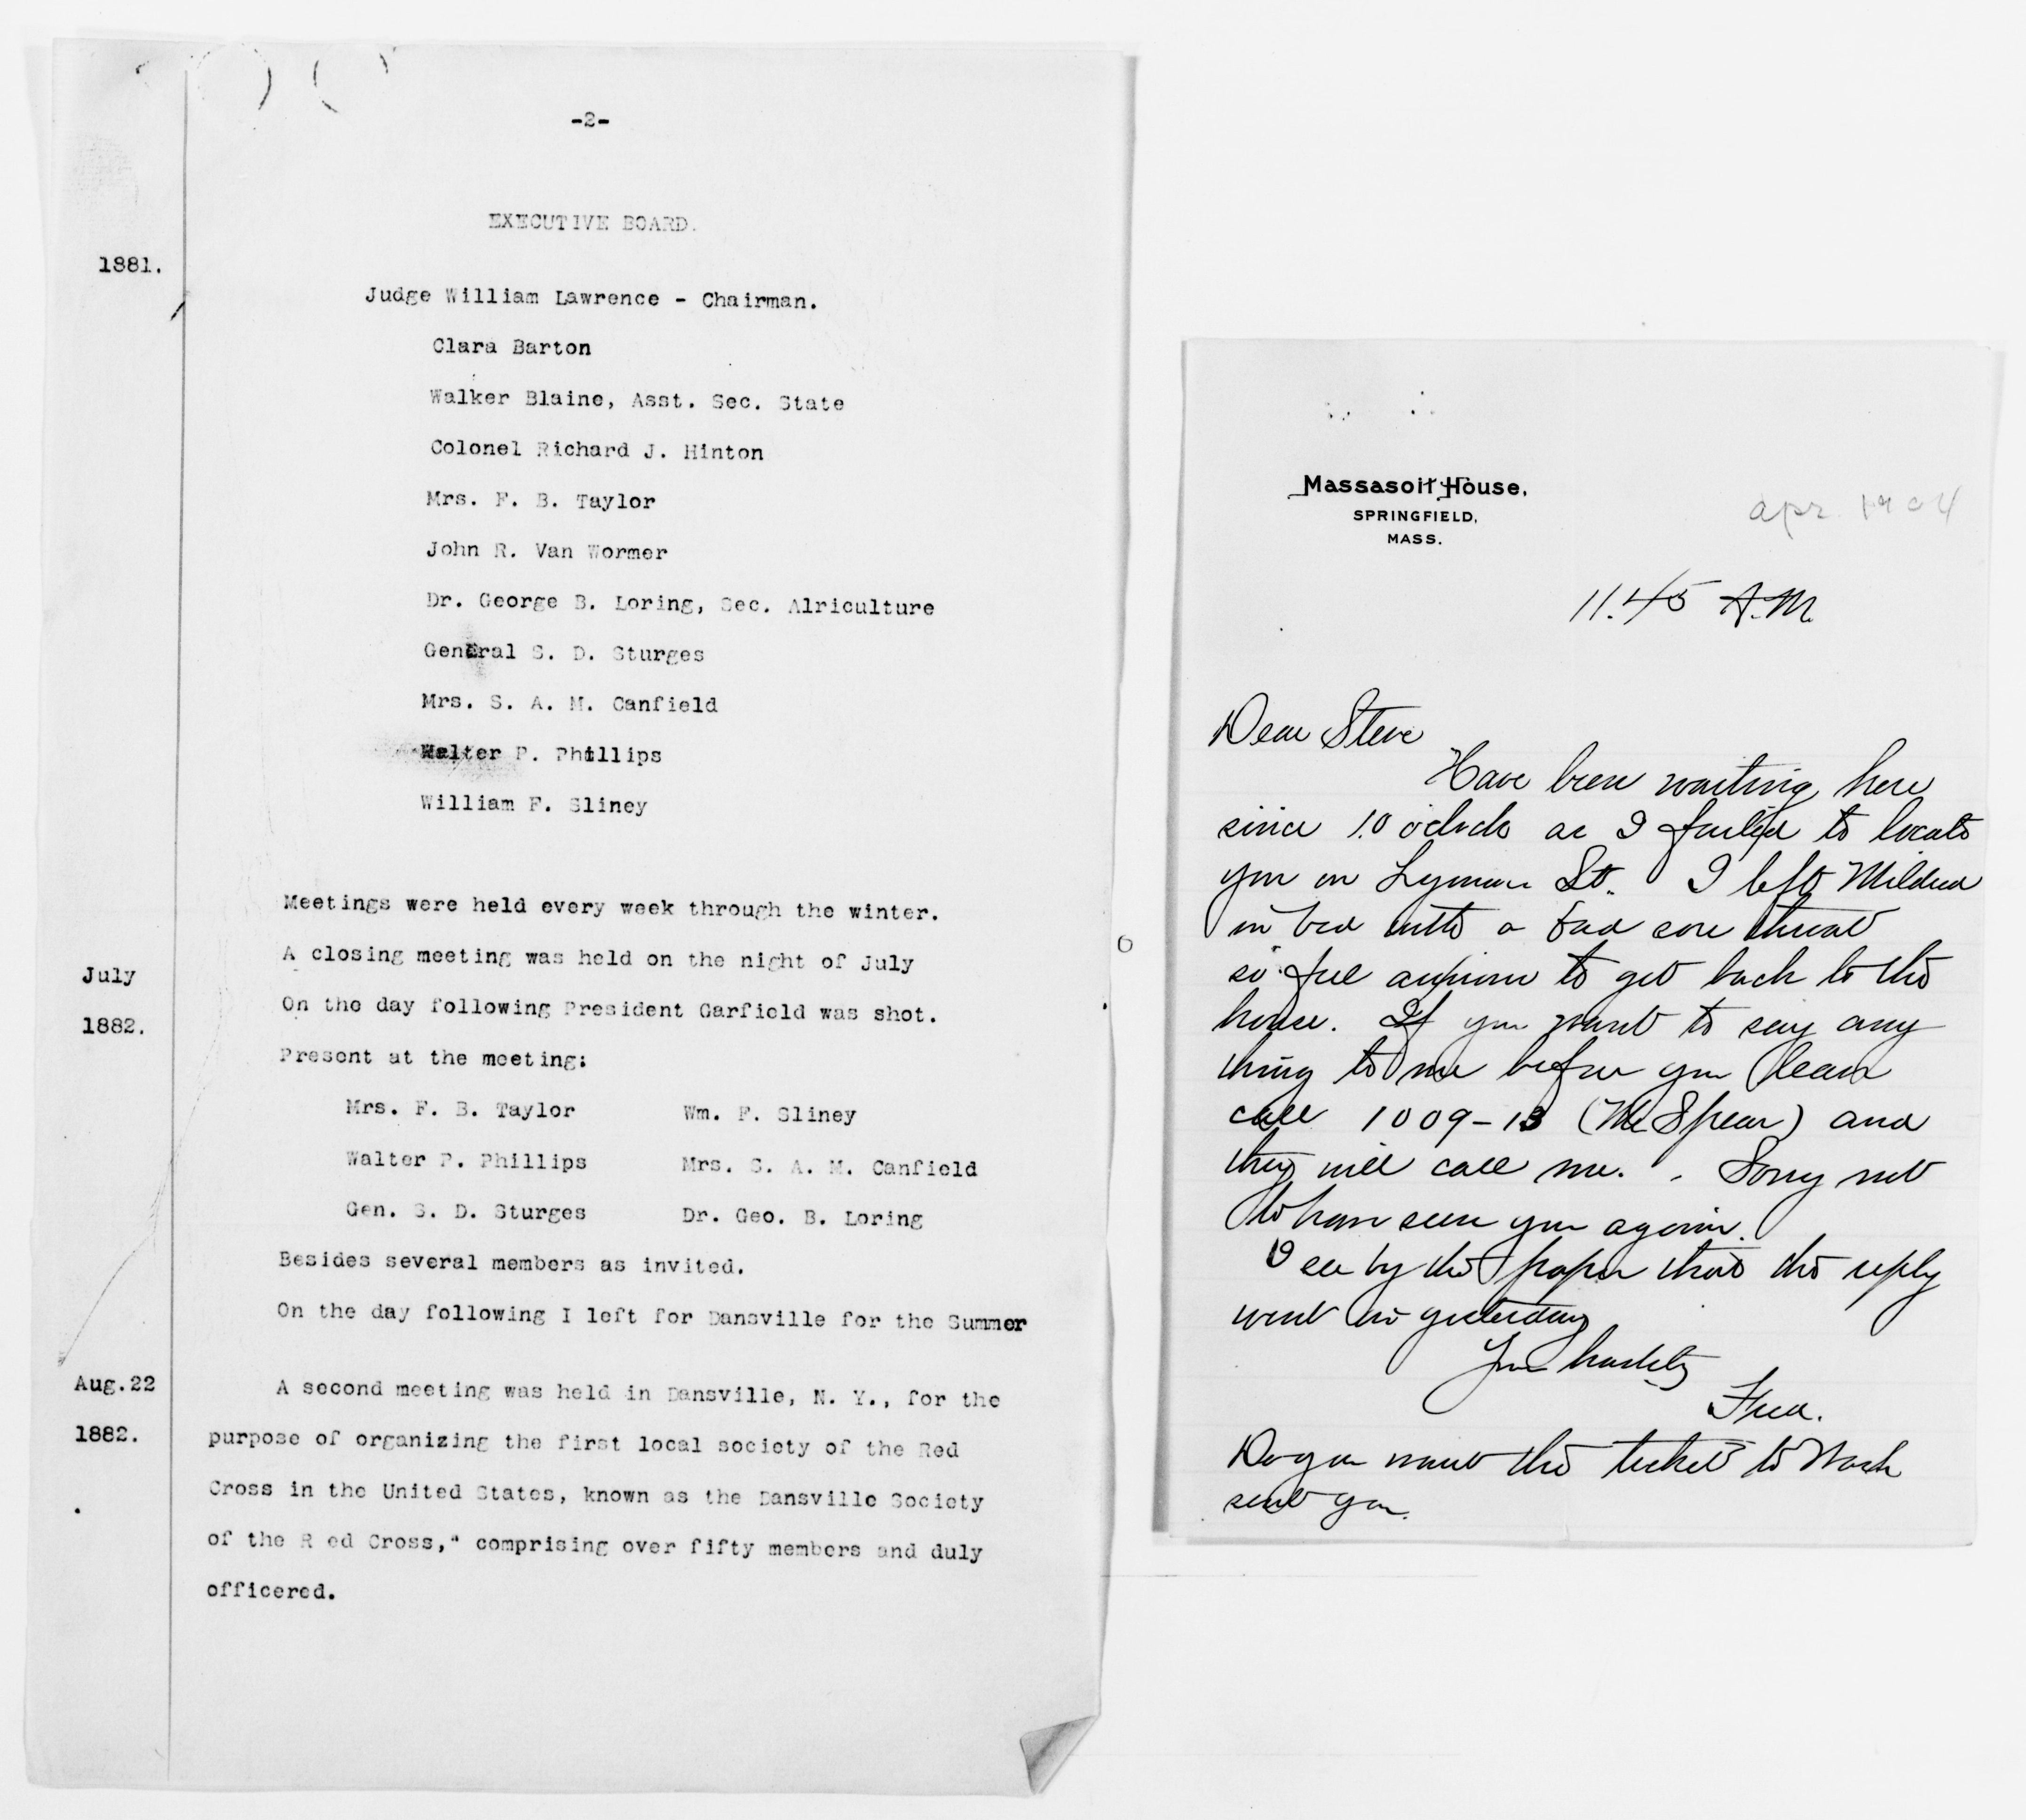 -2-
EXECUTIVE BOARD.
1881.
Judge William Lawrence - Chairman.
Clara Barton
Walker Blaine, Asst. Sec. State
Colonel Richard J. Hinton
Mrs. F. B. Taylor
John R. Van Wormer
Dr. George B. Loring, Sec. Alriculture
General S. D. Sturges
Mrs. S. A. M. Canfield
Walter P. Phillips
William F. Sliney
Meetings were held every week through the winter.
A closing meeting was held on the night of July
July
On the day following President Garfield was shot.
1882.
Present at the meeting:
Mrs. F. B. Taylor Wm. F. Sliney
Walter P. Phillips Mrs. S. A. M. Canfield
Gen. S. D. Sturges Dr. Geo. B. Loring
Besides several members as invited.
On the day following I left for Dansville for the Summer
Aug.22
A second meeting was held in Dansville, N. Y., for the
1882.
purpose of organizing the first local society of the Red
Cross in the United States, known as the Dansville Society
of the R ed Cross," comprising over fifty members and duly
officered.
Massasoit House,
SPRINGFIELD,
MASS.
apr. 1904
11.45 A.M.
Dear Steve
Have been waiting here
since 10 oclock as I failed to locate
you on Lyman St. I left Mildred
in bed with a bad sore throat
so feel anxious to get back to the
house. If you want to say any
thing to me before you leave
call 1009-13 (McSpear) and
they will call me. Sorry not
to have seen you again.
I see by the paper that the reply
went in yesterday
Your hastily
Fred.
Do you want the ticket to Wash
sent you.